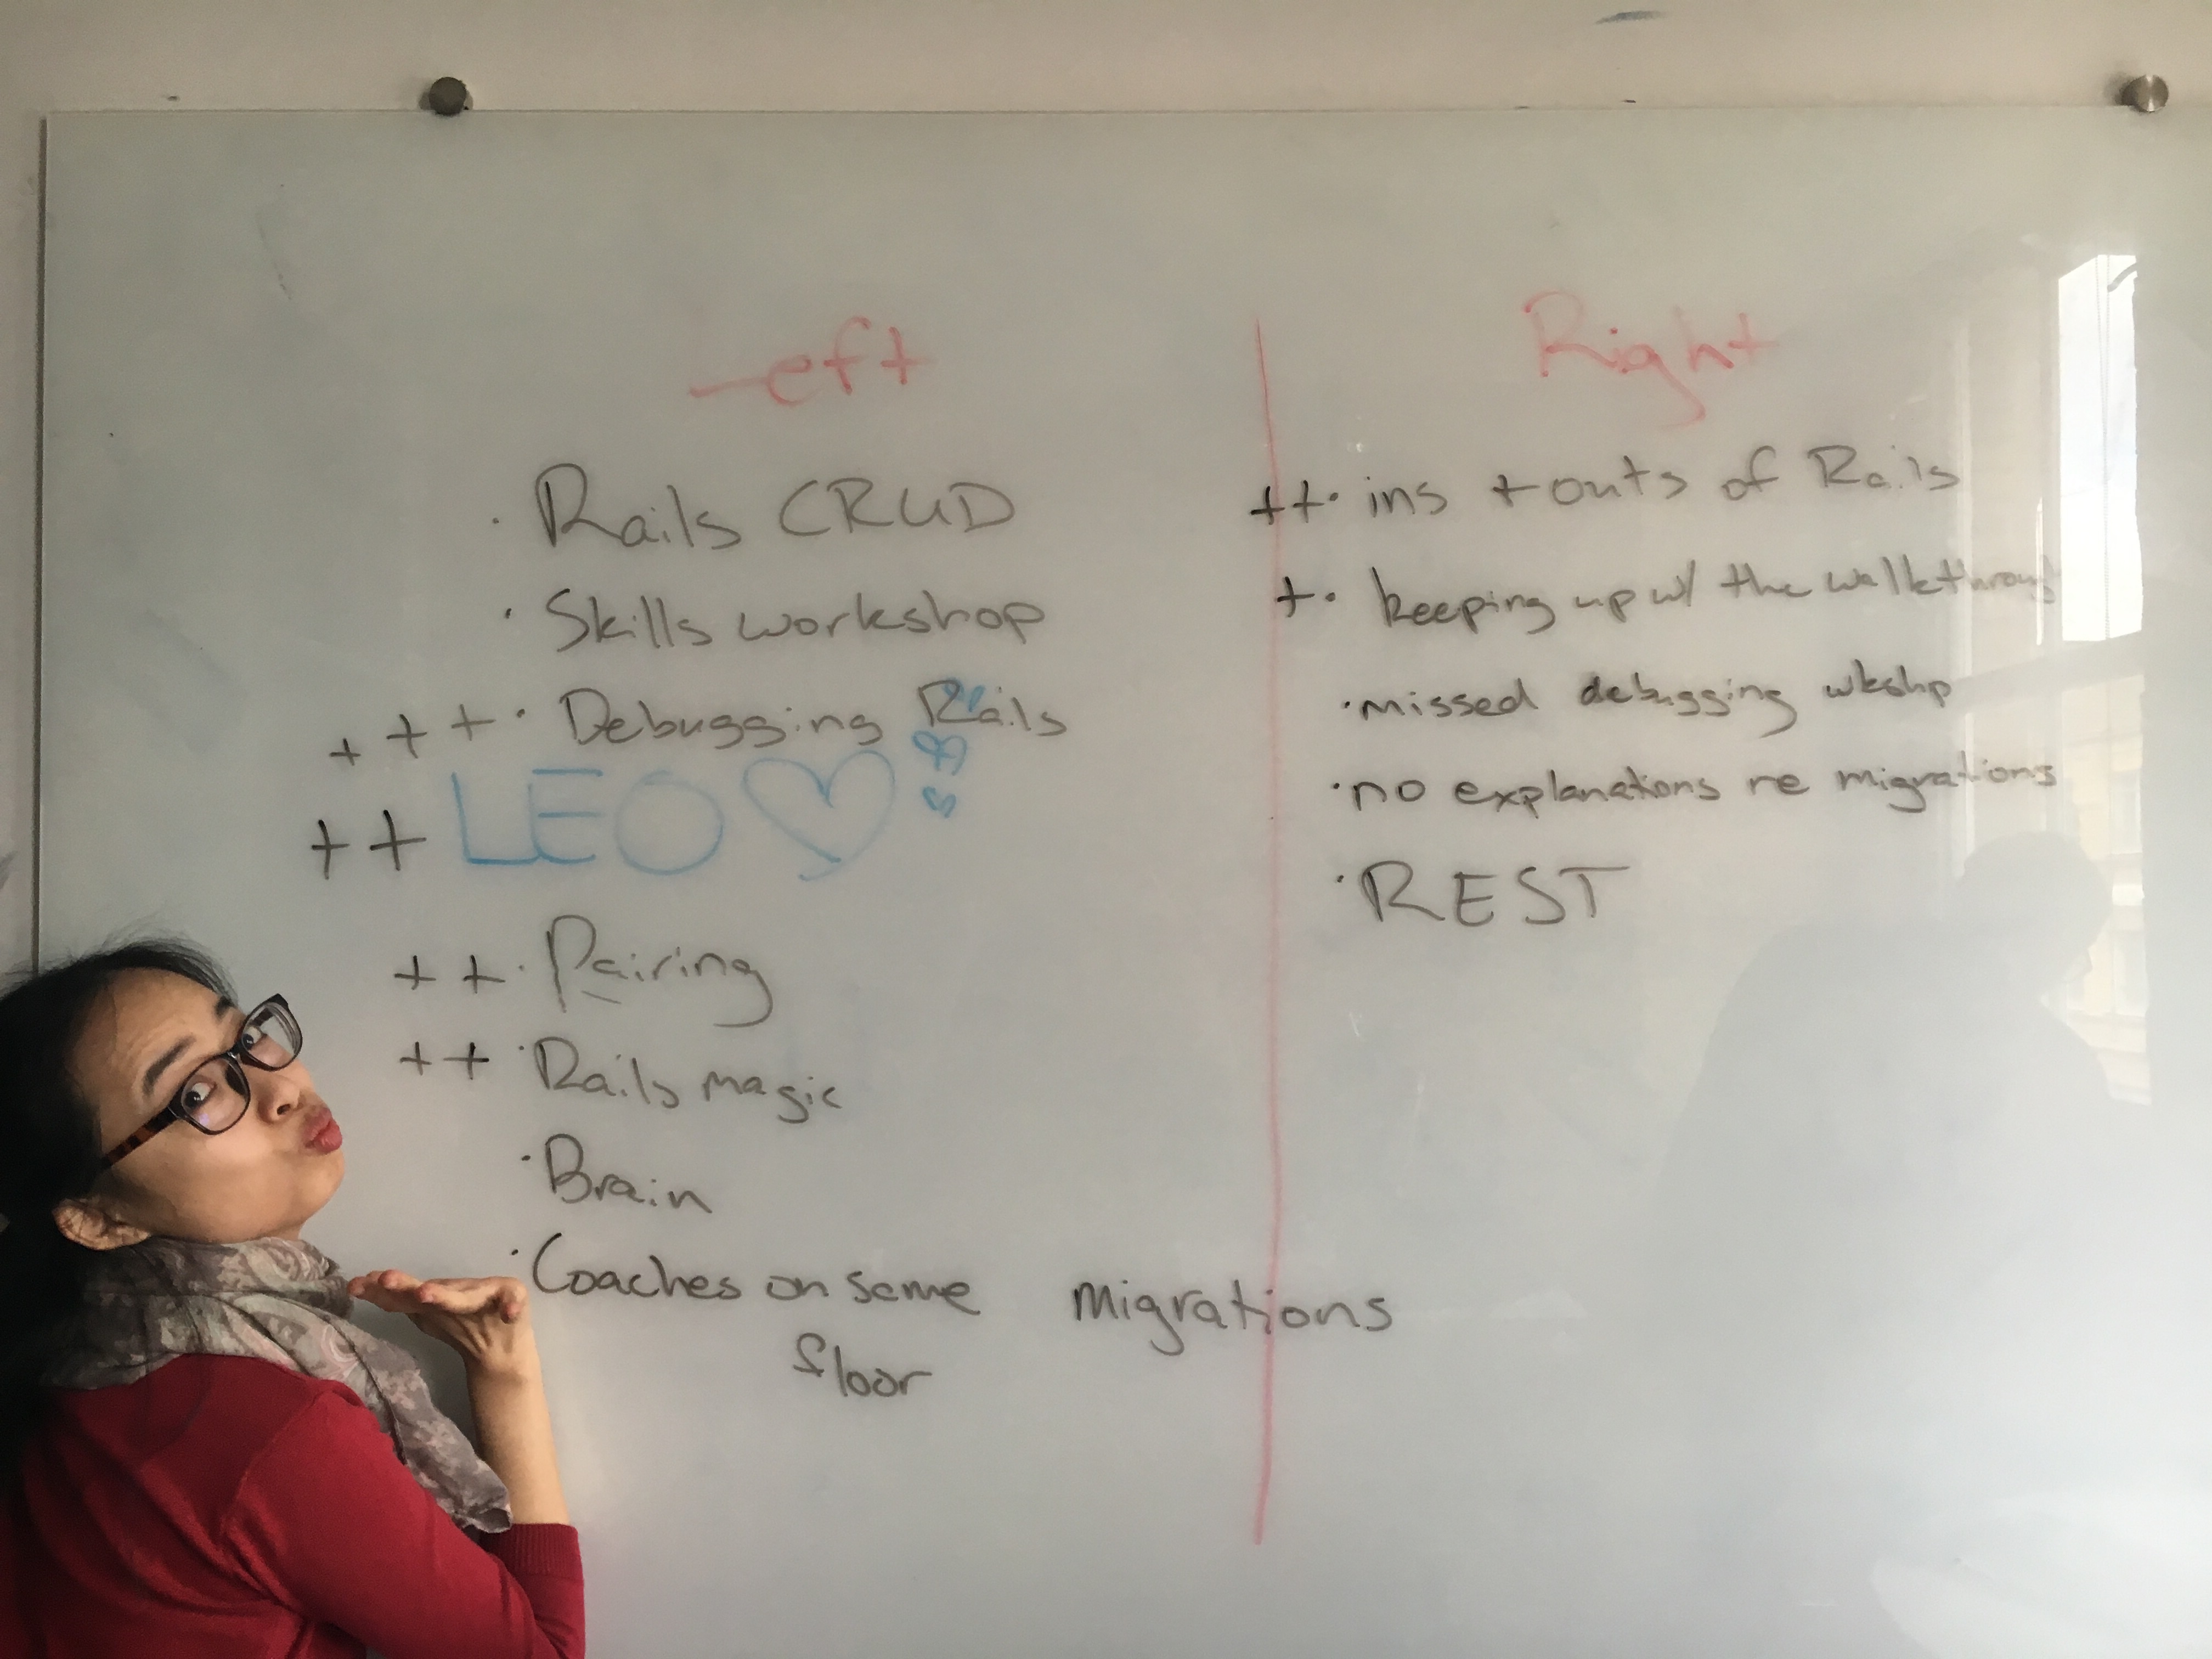 Left
· Rails CRUD
· Skills workshop
+ + + · Debugging Rails
++ LEO
+ + · Pairing
++ · Rails magic
· Brain
· Coaches on same
floor
migrations
Right
++· ins + outs of Rails
+· keeping up w/ the walkthroug
· missed debugging wkshp
· no explanations re migrations
· REST